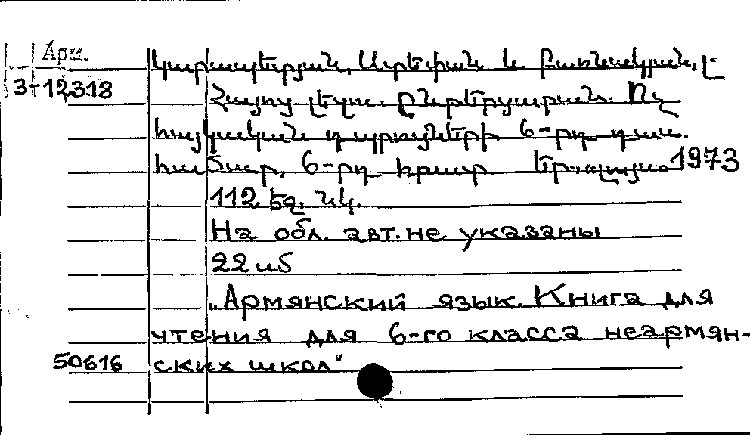 Арм.
Կարապետյան, Ստեփան և Բաոնակյան, Լ
3-12318
Հայոց լեզու. Ընթերցարան. Ոչ
հայկական դպրոցների 6-րդ դաս.
համար. 6-րդ հրատ. Եր., 1973
112 էջ. նկ.
На обл. авт. не указаны
22 иб
"Армянский язык. Книга для
чтения для 6-го класса неармян-
50616 ских школ"